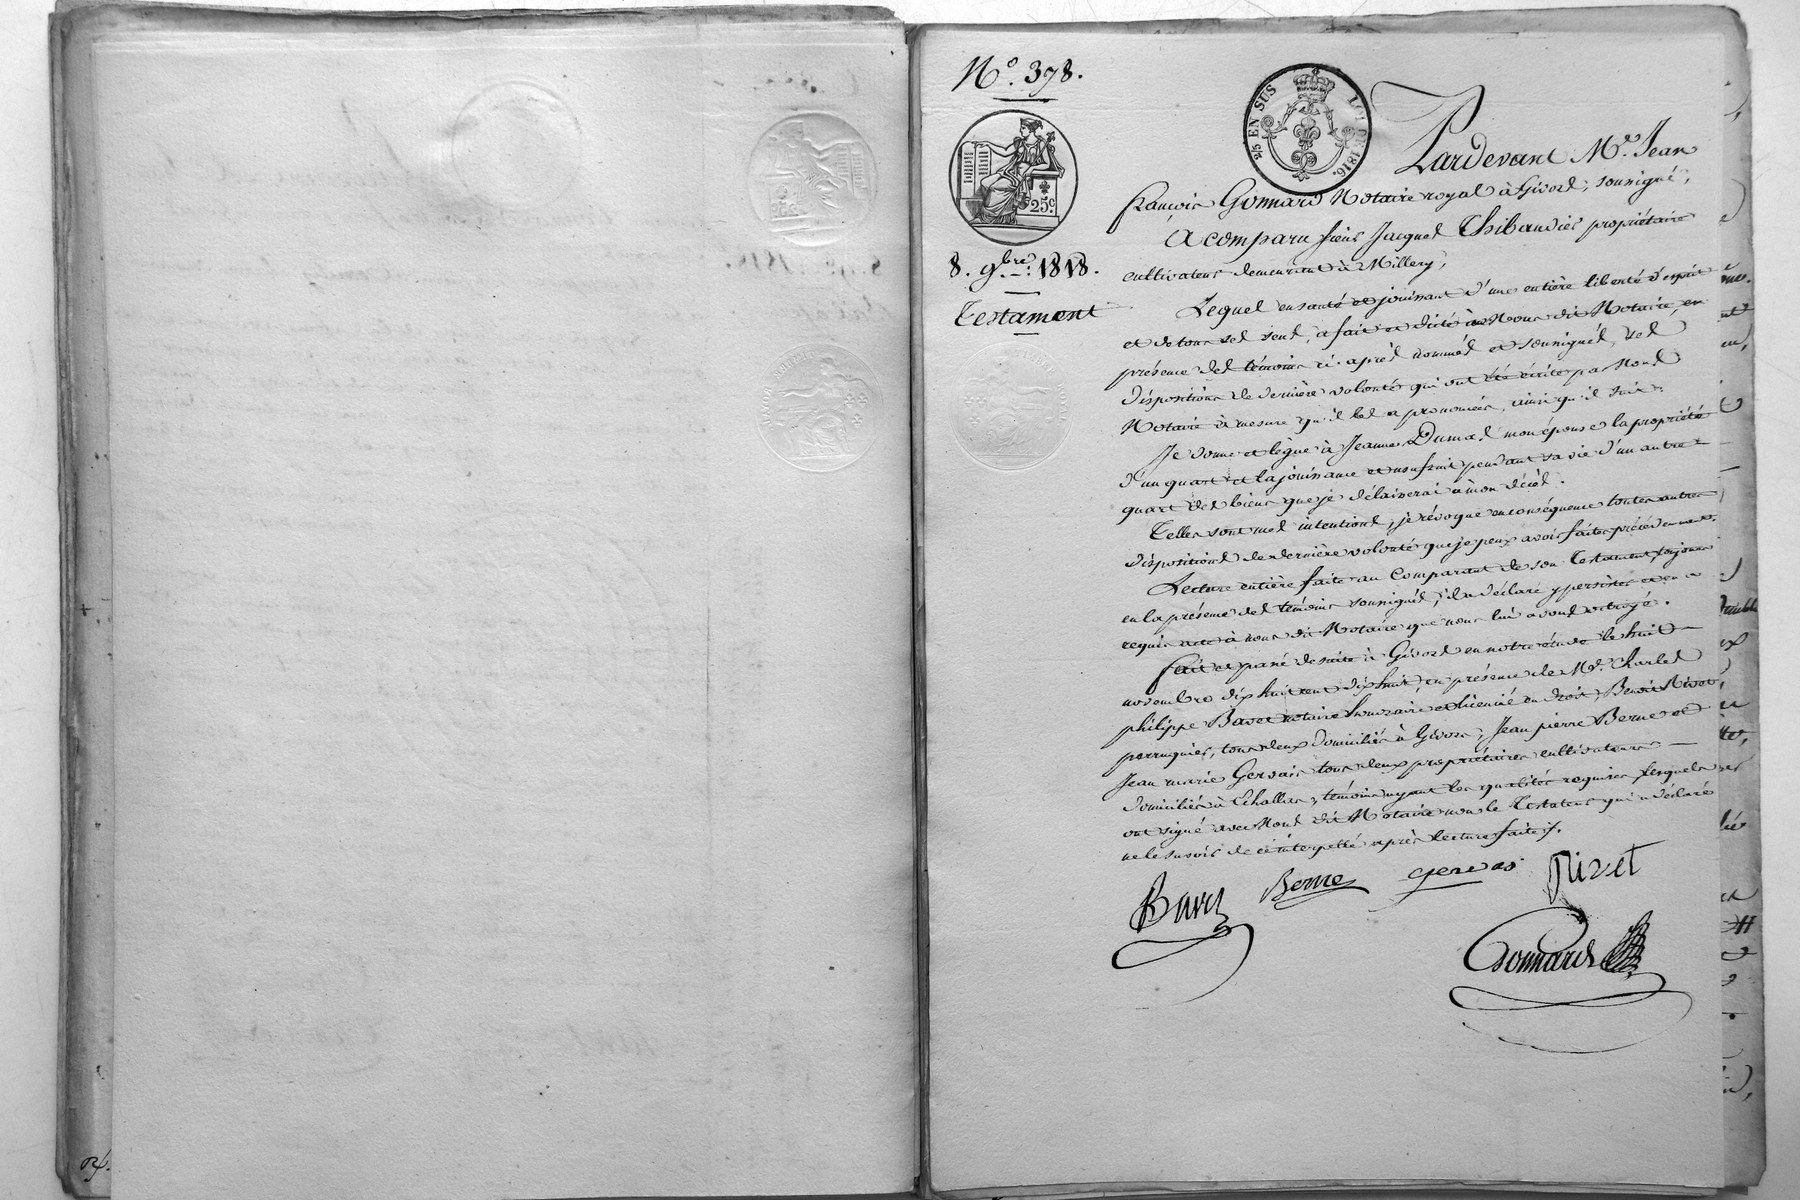 N.° 378.
2/5 EN SUS LOI DE 1816.
25.c
8. 9bre 1818.
Testament
Pardevant M.e Jean
françois Gonnard Notaire royal à Givors, soussigné,
A comparu sieur Jacques Thibaudier propriétaire
cultivateur demeurant à Millery,
Lequel en santé et jouissant d'une entière liberté d'esprit
et de tous ses sens, a fait et dicté à Nous dit Notaire, en
présence des témoins ci-après nommés et soussignés, ses
dispositions de dernière volonté qui ont été écrites par Nous
Notaire à mesure qu'il les a prononcées, ainsi qu'il suit:
Je donne et lègue à Jeanne Dumas mon épouse la propriété
d'un quart et la jouissance et usufruit pendant sa vie d'un autre
quart des biens que je délaisserai à mon décès.
Telles sont mes intentions, je révoque en conséquence toutes autres
dispositions de dernière volonté que je peux avoir faites précédemment.
Lecture entière faite au Comparant de son Testament, toujours
en la présence des témoins soussignés, il a déclaré y persister et en a
requis acte à nous dit Notaire que nous lui avons octroyé.
fait et passé de suite à Givors en notre étude le huit
novembre dix huit cent dix huit, en présence de M.e Charles
philippe Bavet notaire honoraire et licencié en droit, Benoit Rivet,
perruquier, tous deux domiciliés à Givors, Jean pierre Berne et
Jean marie Gervais tous deux propriétaires cultivateurs
domiciliés à Echallas, témoins ayant les qualités requises, lesquels
ont signé avec Nous dit Notaire non le Testateur qui a déclaré
ne le savoir de ce interpellé après lecture faite./.
Bavet Berne gervais Rivet
Gonnard